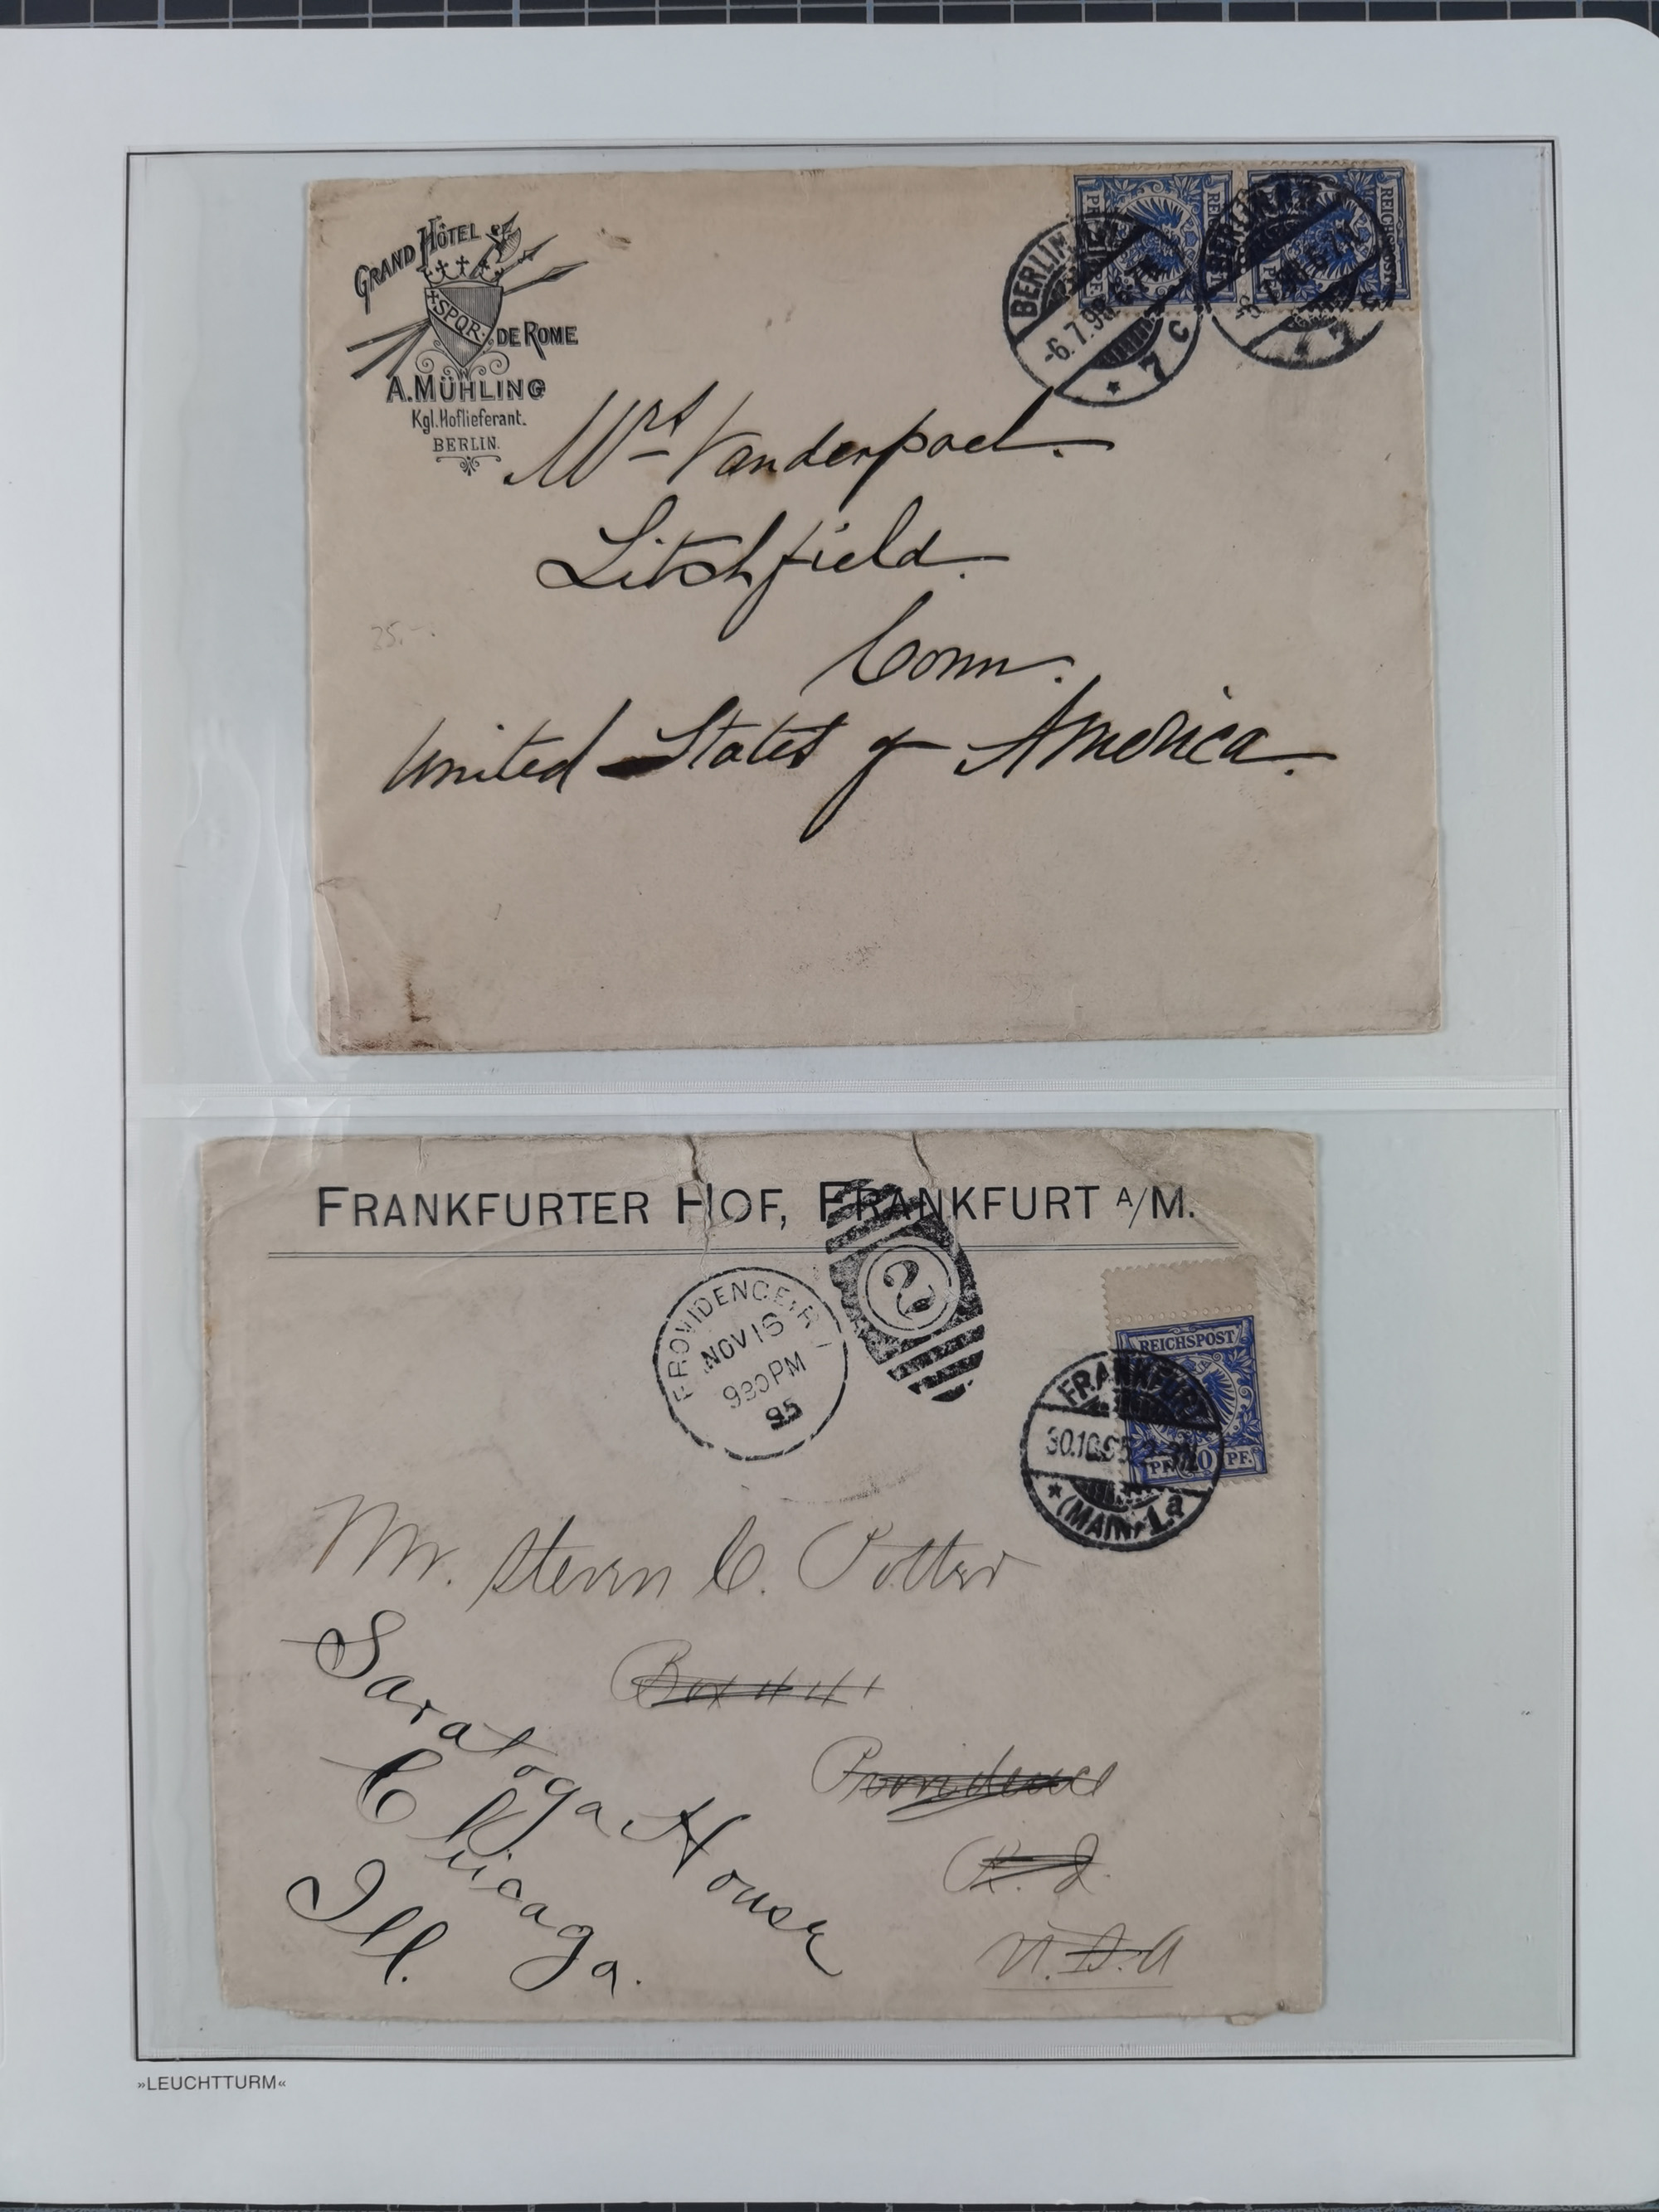 GRAND HÔTEL
SPQR
DE ROME
A. MÜHLING
Kgl. Hoflieferant.
BERLIN.
REICHSPOST
REICHSPOST
BERLIN
-6.7.98
* 7 c
Mrs Vanderpoel.
Litchfield.
Conn.
United States of America.
25.-
FRANKFURTER HOF, FRANKFURT A/M.
PROVIDENCE, R I
NOV 16
930 PM
95
2
REICHSPOST
PF. 20 PF.
FRANKFURT
30.10.95
* (MAIN) 1.a
Mr. Steven C. Potter
Box 441
Providence
R. I.
U.S.A
Saratoga House
Chicago.
Ill.
»LEUCHTTURM«